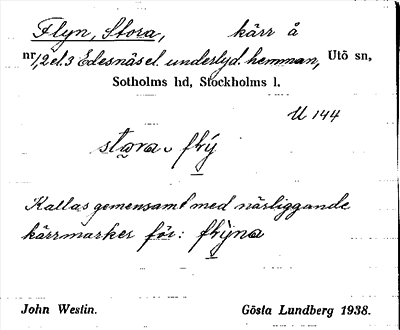 Flyn, Stora, kärr å
nr 1,2 el. 3 Edesnäs el. underlyd. hemman, Utö sn,
Sotholms hd, Stockholms l.
U 144
stora flý
Kallas gemensamt med närliggande
kärrmarker för: flýna
John Westin. Gösta Lundberg 1938.